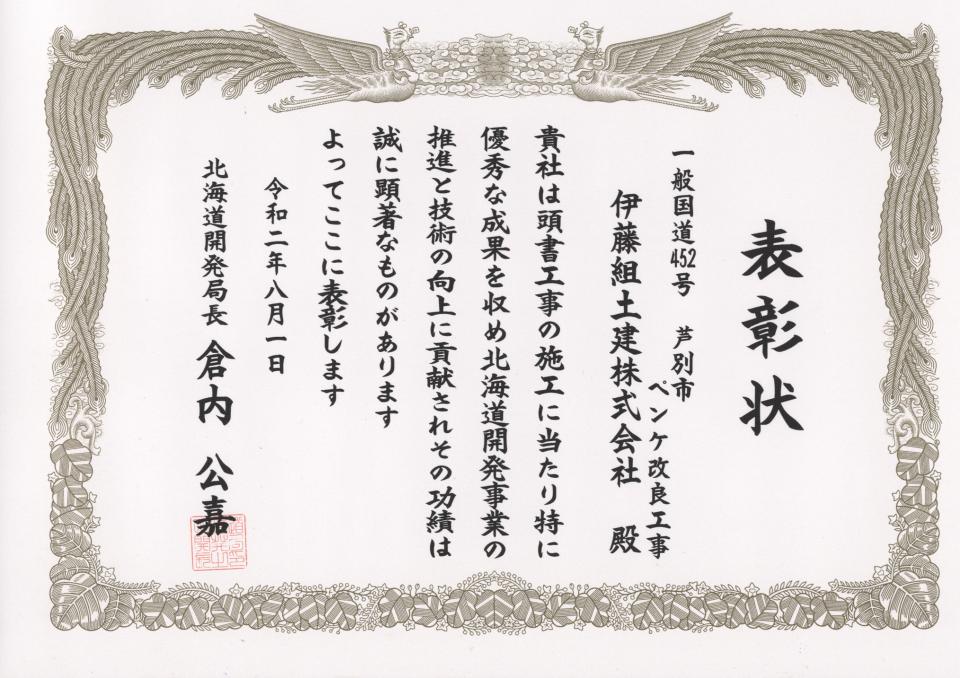 表彰状
一般国道452号 芦別市
ペンケ改良工事
伊藤組土建株式会社 殿
貴社は頭書工事の施工に当たり特に
優秀な成果を収め北海道開発事業の
推進と技術の向上に貢献されその功績は
誠に顕著なものがあります
よってここに表彰します
令和二年八月一日
北海道開発局長 倉内 公嘉